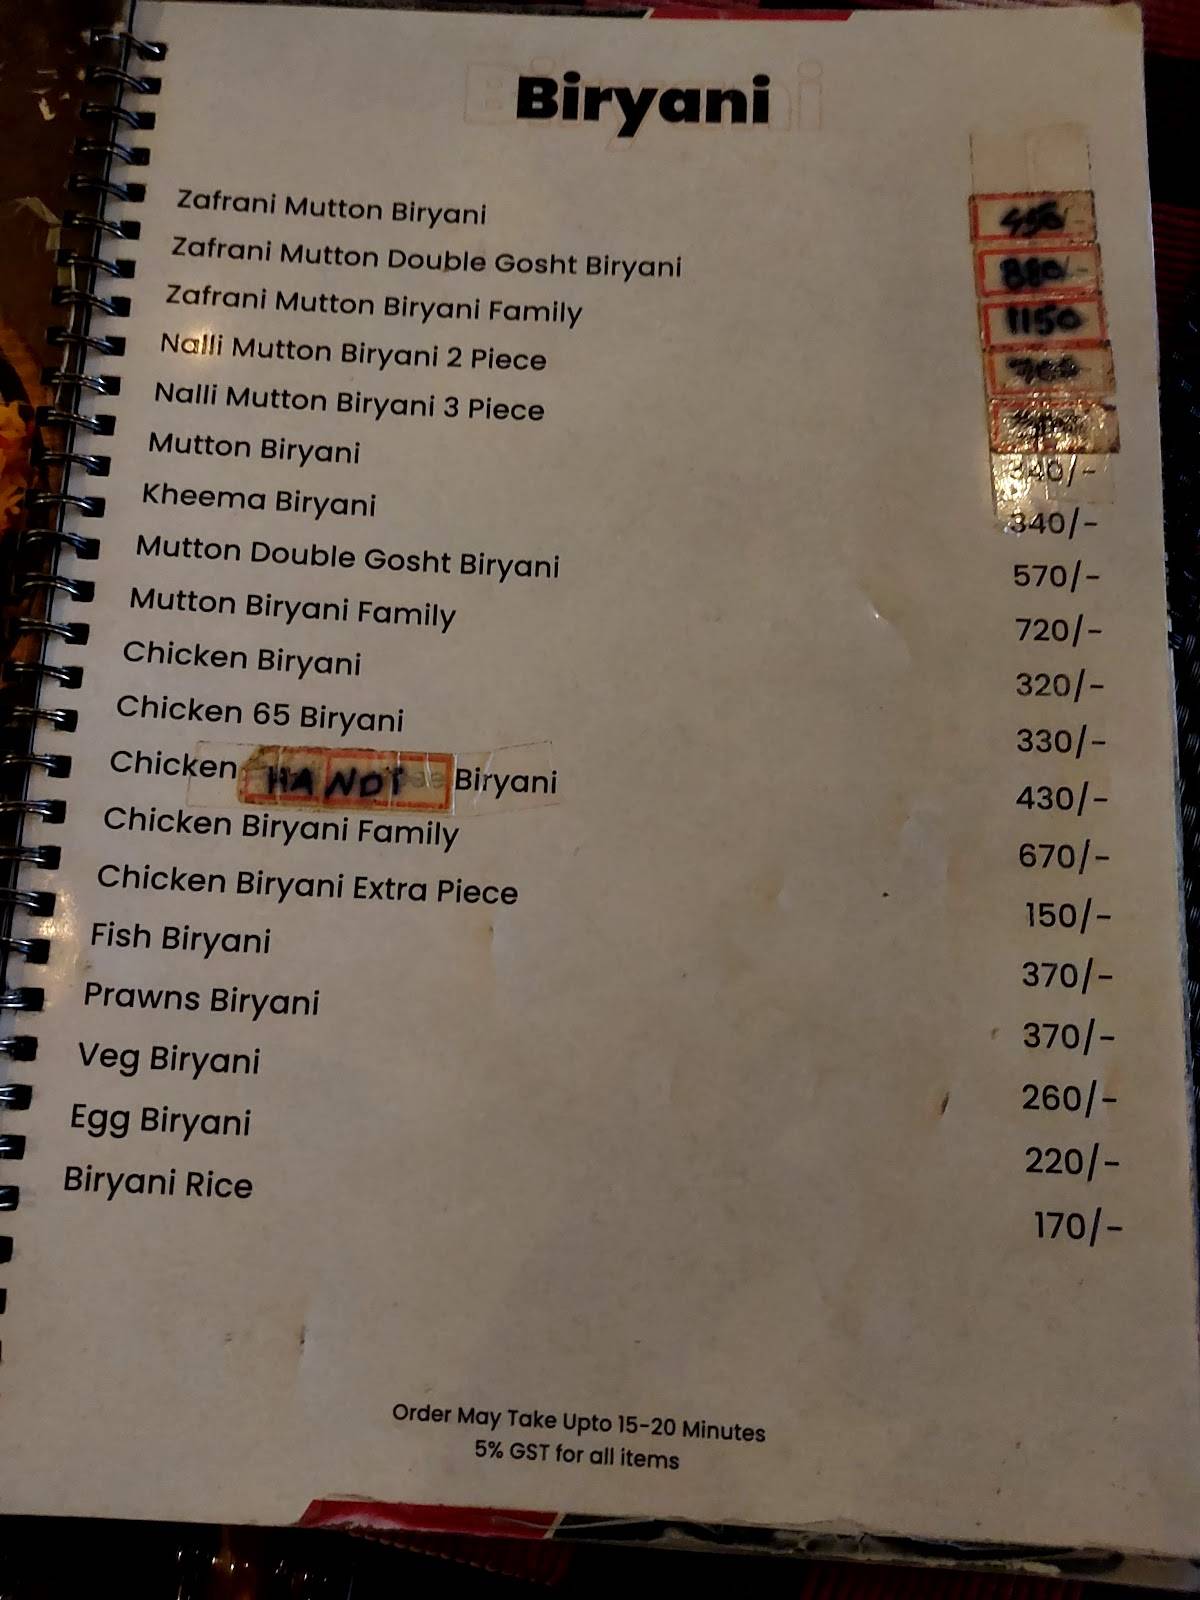 Biryani
Zafrani Mutton Biryani
Zafrani Mutton Double Gosht Biryani 880/-
Zafrani Mutton Biryani Family 1150
Nalli Mutton Biryani 2 Piece
Nalli Mutton Biryani 3 Piece
Mutton Biryani 340/-
Kheema Biryani 340/-
Mutton Double Gosht Biryani 570/-
Mutton Biryani Family 720/-
Chicken Biryani 320/-
Chicken 65 Biryani 330/-
Chicken HANDI Biryani 430/-
Chicken Biryani Family 670/-
Chicken Biryani Extra Piece 150/-
Fish Biryani 370/-
Prawns Biryani 370/-
Veg Biryani 260/-
Egg Biryani 220/-
Biryani Rice 170/-
Order May Take Upto 15-20 Minutes
5% GST for all items